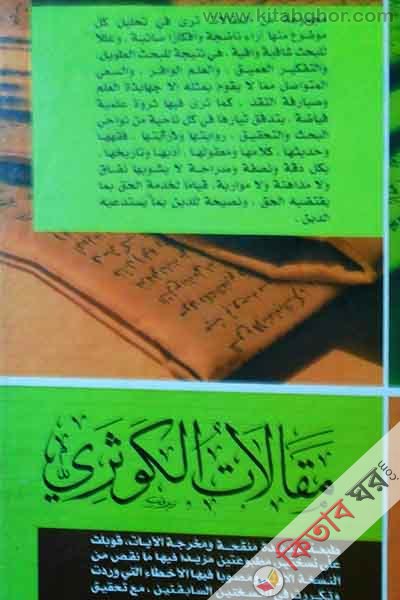 www.kitabghor.com
ترى في تحليل كل
موضوع منها آراء ناضجة وأفكارا صائبة، وعللا
للبحث شافية وافية، هي نتيجة للبحث الطويل،
والتفكير العميق، والعلم الوافر، والسعي
المتواصل مما لا يقوم بمثله إلا جهابذة العلم
وصيارفة النقد، كما ترى فيها ثروة علمية
فياضة، يتدفق تيارها في كل ناحية من نواحي
البحث والتحقيق، روايتها ودرايتها، فقهها
وحديثها، كلامها ومعقولها، أدبها وتاريخها،
بكل دقة ونصفة وصراحة لا يشوبها نفاق
ولا مداهنة ولا مواربة، قياما لخدمة الحق بما
يقتضيه الحق، ونصيحة للدين بما يستدعيه
الدين.
مقالات الكوثري
منقحة ومخرجة الآيات، قوبلت
على نسختين مطبوعتين مزيدا فيها ما نقص من
النسخة مصوبا فيها الأخطاء التي وردت
السابقتين، مع تحقيق
কিতাব ঘর
.com